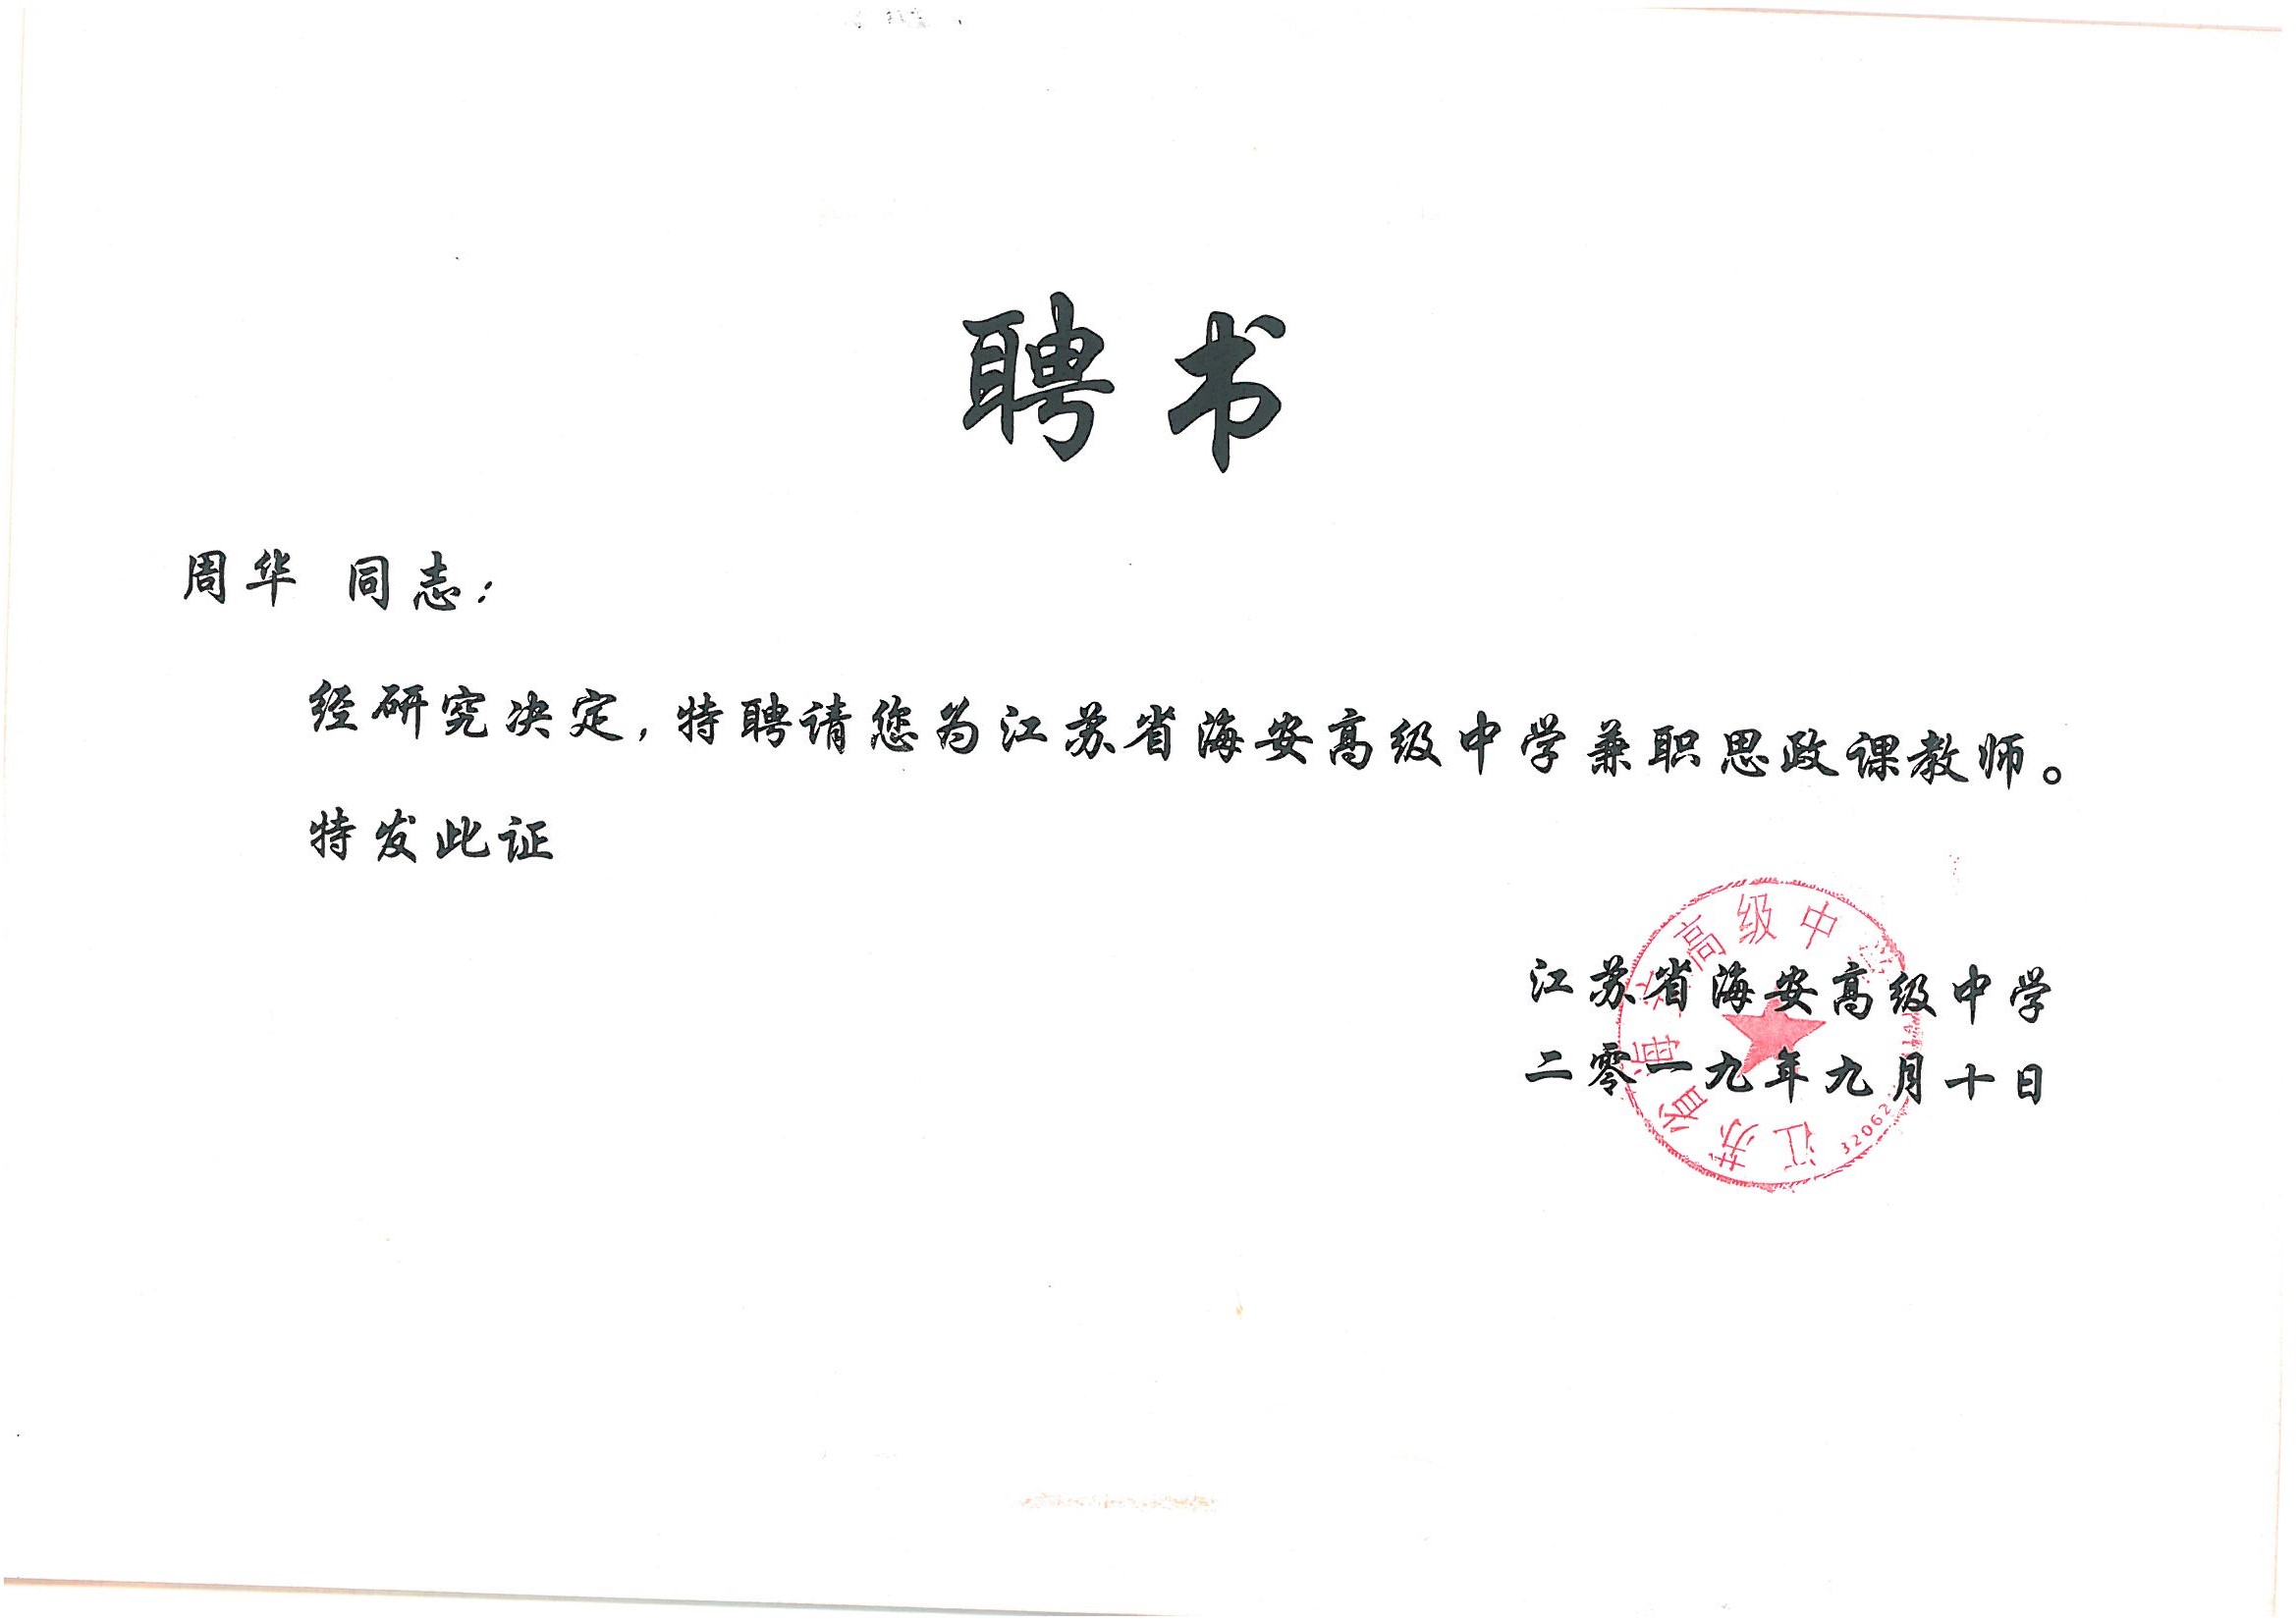 聘书
周华 同志：
经研究决定，特聘请您为江苏省海安高级中学兼职思政课教师。
特发此证
江苏省海安高级中学
二零一九年九月十日
江苏省海安高级中
32062